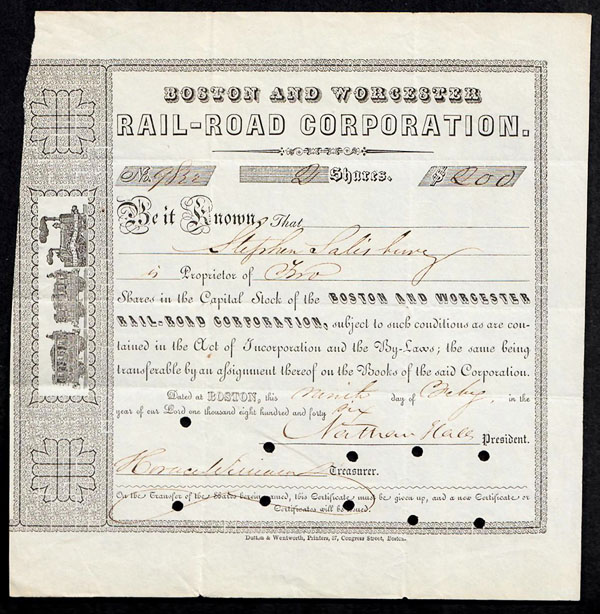 BOSTON AND WORCESTER
RAIL-ROAD CORPORATION.
No. 2 Shares. $ 200
Be it Known, That
Stephen Salisbury
is Proprietor of Two
Shares in the Capital Stock of the BOSTON AND WORCESTER
RAIL-ROAD CORPORATION, subject to such conditions as are con-
tained in the Act of Incorporation and the By-Laws; the same being
transferable by an assignment thereof on the Books of the said Corporation.
Dated at BOSTON, this ninth day of in the
year of our Lord one thousand eight hundred and forty six
Nathan Hale President.
Treasurer.
On the Transfer of the Shares herein named, this Certificate must be given up, and a new Certificate or
Certificates will be issued.
Dutton & Wentworth, Printers, 37, Congress Street, Boston.